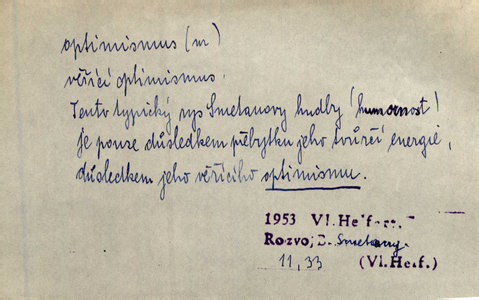 optimismus (m)
věřící optimismus.
Tento typický rys Smetanovy hudby (humornost)
je pouze důsledkem přebytku jeho tvůrčí energie,
důsledkem jeho věřícího optimismu.
1953 Vl. Helfert
Rozvoj B. Smetany
11, 33 (Vl. Helf.)